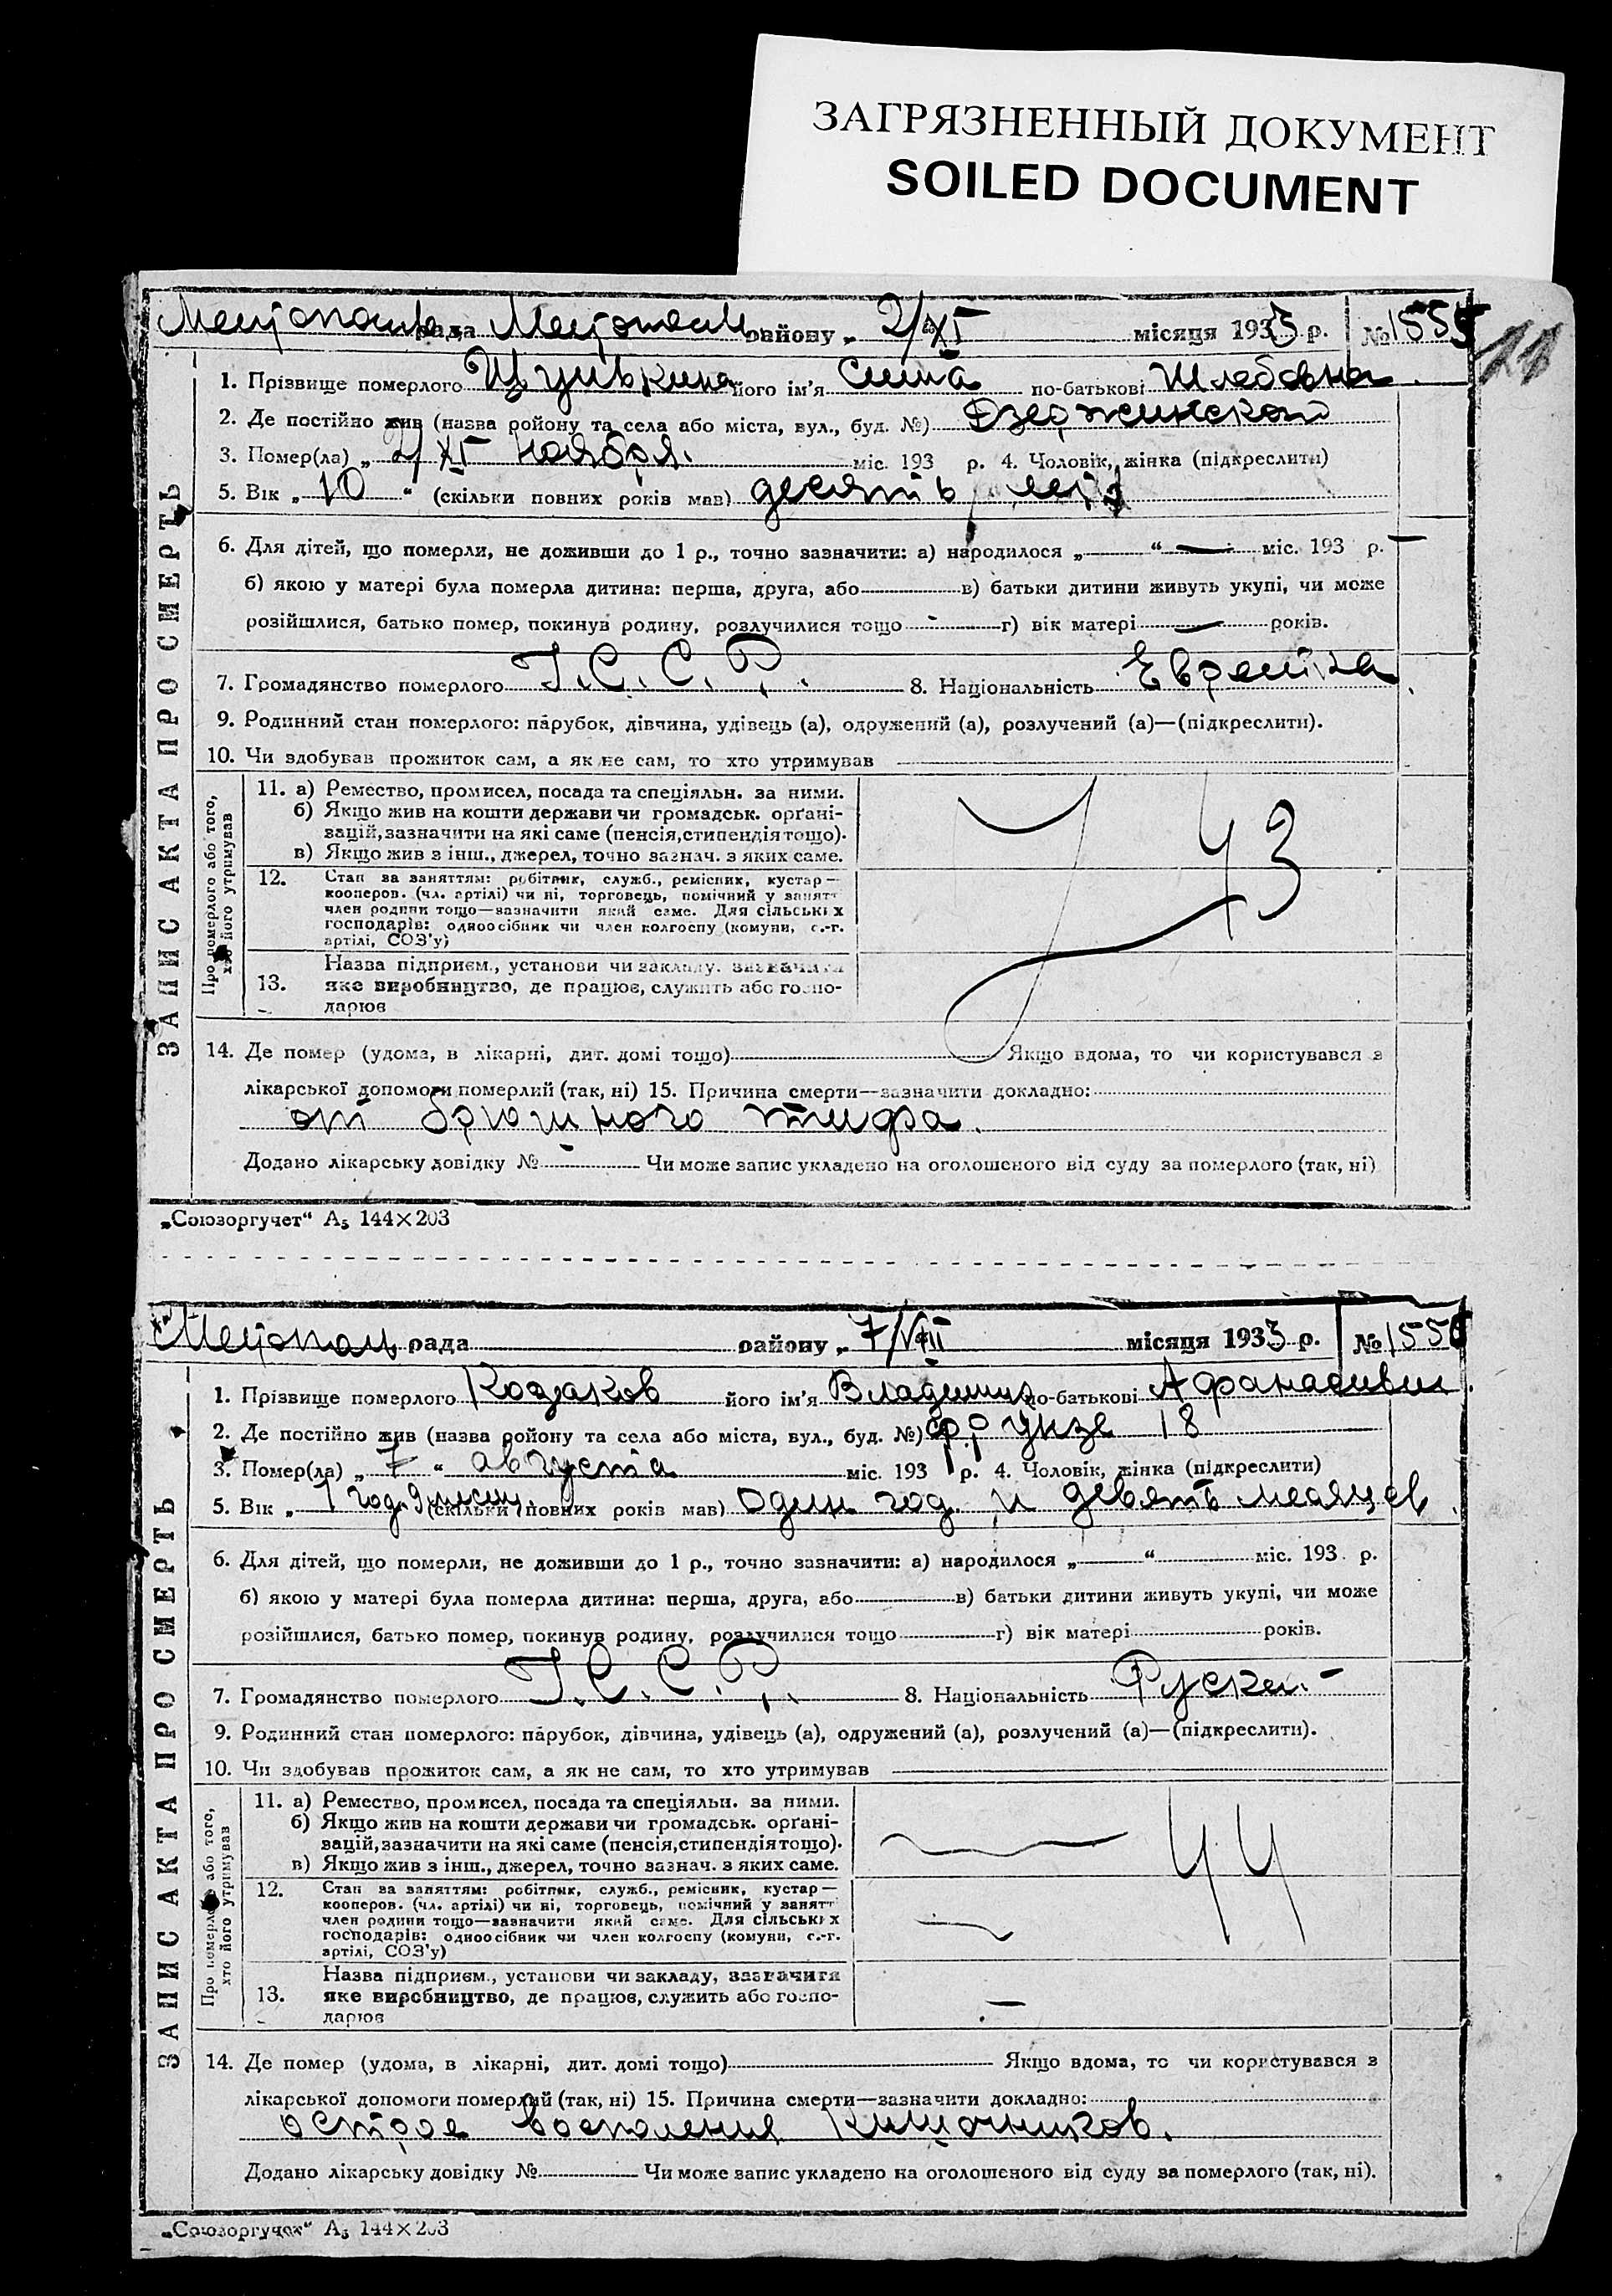 ЗАГРЯЗНЕННЫЙ ДОКУМЕНТ
SOILED DOCUMENT
рада району „ 2/XI місяця 1933 р. № 155
11
ЗАПИС АКТА ПРО СМЕРТЬ
1. Прізвище померлого його ім'я по-батькові
2. Де постійно жив (назва району та села або міста, вул., буд. №) Дзержинской
3. Помер(ла) „ 2/XI ноября. міс. 193 р. 4. Чоловік, жінка (підкреслити)
5. Вік „ 10 “ (скільки повних років мав) десять лет
6. Для дітей, що померли, не доживши до 1 р., точно зазначити: а) народилося „ “ — міс. 193 р. —
б) якою у матері була померла дитина: перша, друга, або в) батьки дитини живуть укупі, чи може
розійшлися, батько помер, покинув родину, розлучилися тощо - г) вік матері — років.
7. Громадянство померлого У.С.С.Р. 8. Національність Еврейка
9. Родинний стан померлого: парубок, дівчина, удівець (а), одружений (а), розлучений (а)—(підкреслити).
10. Чи здобував прожиток сам, а як не сам, то хто утримував
Про померлого або того, хто його утримував
11. а) Ремество, промисел, посада та спеціяльн. за ними.
б) Якщо жив на кошти держави чи громадськ. орґані-
зацій, зазначити на які саме (пенсія, стипендія тощо).
в) Якщо жив з інш., джерел, точно зазнач. з яких саме.
43
12. Стан за заняттям: робітник, служб., ремісник, кустар—
кооперов. (чл. артілі) чи ні, торговець, помічний у занятт
член родини тощо—зазначити який саме. Для сільських
господарів: одноосібник чи член колгоспу (комуни, с.-г.
артілі, СОЗ'у)
13. Назва підприєм., установи чи закладу, зазначити
яке виробництво, де працює, служить або госпо-
дарює
14. Де помер (удома, в лікарні, дит. домі тощо) Якщо вдома, то чи користувався з
лікарської допомоги померлий (так, ні) 15. Причина смерти—зазначити докладно:
от брюшного тифа.
Додано лікарську довідку № Чи може запис укладено на оголошеного від суду за померлого (так, ні)
„Союзоргучет“ А5 144×203
рада району „ 7/VIII місяця 1933 р. № 155
ЗАПИС АКТА ПРО СМЕРТЬ
1. Прізвище померлого Козаков його ім'я Владимир по-батькові Афанасивич
2. Де постійно жив (назва району та села або міста, вул., буд. №) Фрунзе 18
3. Помер(ла) „ 7 “ августа міс. 193 р. 4. Чоловік, жінка (підкреслити)
5. Вік „ 1 год. 9 месяц. (скільки повних років мав) один год и девять месяцев.
6. Для дітей, що померли, не доживши до 1 р., точно зазначити: а) народилося „ “ міс. 193 р.
б) якою у матері була померла дитина: перша, друга, або в) батьки дитини живуть укупі, чи може
розійшлися, батько помер, покинув родину, розлучилися тощо г) вік матері років.
7. Громадянство померлого У.С.С.Р. 8. Національність Руский
9. Родинний стан померлого: парубок, дівчина, удівець (а), одружений (а), розлучений (а)—(підкреслити).
10. Чи здобував прожиток сам, а як не сам, то хто утримував
Про померлого або того, хто його утримував
11. а) Ремество, промисел, посада та спеціяльн. за ними.
б) Якщо жив на кошти держави чи громадськ. орґані-
зацій, зазначити на які саме (пенсія, стипендія тощо).
в) Якщо жив з інш., джерел, точно зазнач. з яких саме.
44
12. Стан за заняттям: робітник, служб., ремісник, кустар—
кооперов. (чл. артілі) чи ні, торговець, помічний у занятт
член родини тощо—зазначити який саме. Для сільських
господарів: одноосібник чи член колгоспу (комуни, с.-г.
артілі, СОЗ'у)
13. Назва підприєм., установи чи закладу, зазначити
яке виробництво, де працює, служить або госпо-
дарює
14. Де помер (удома, в лікарні, дит. домі тощо) Якщо вдома, то чи користувався з
лікарської допомоги померлий (так, ні) 15. Причина смерти—зазначити докладно:
острое воспаления кишочников.
Додано лікарську довідку № Чи може запис укладено на оголошеного від суду за померлого (так, ні).
„Союзоргучет“ А5 144×203